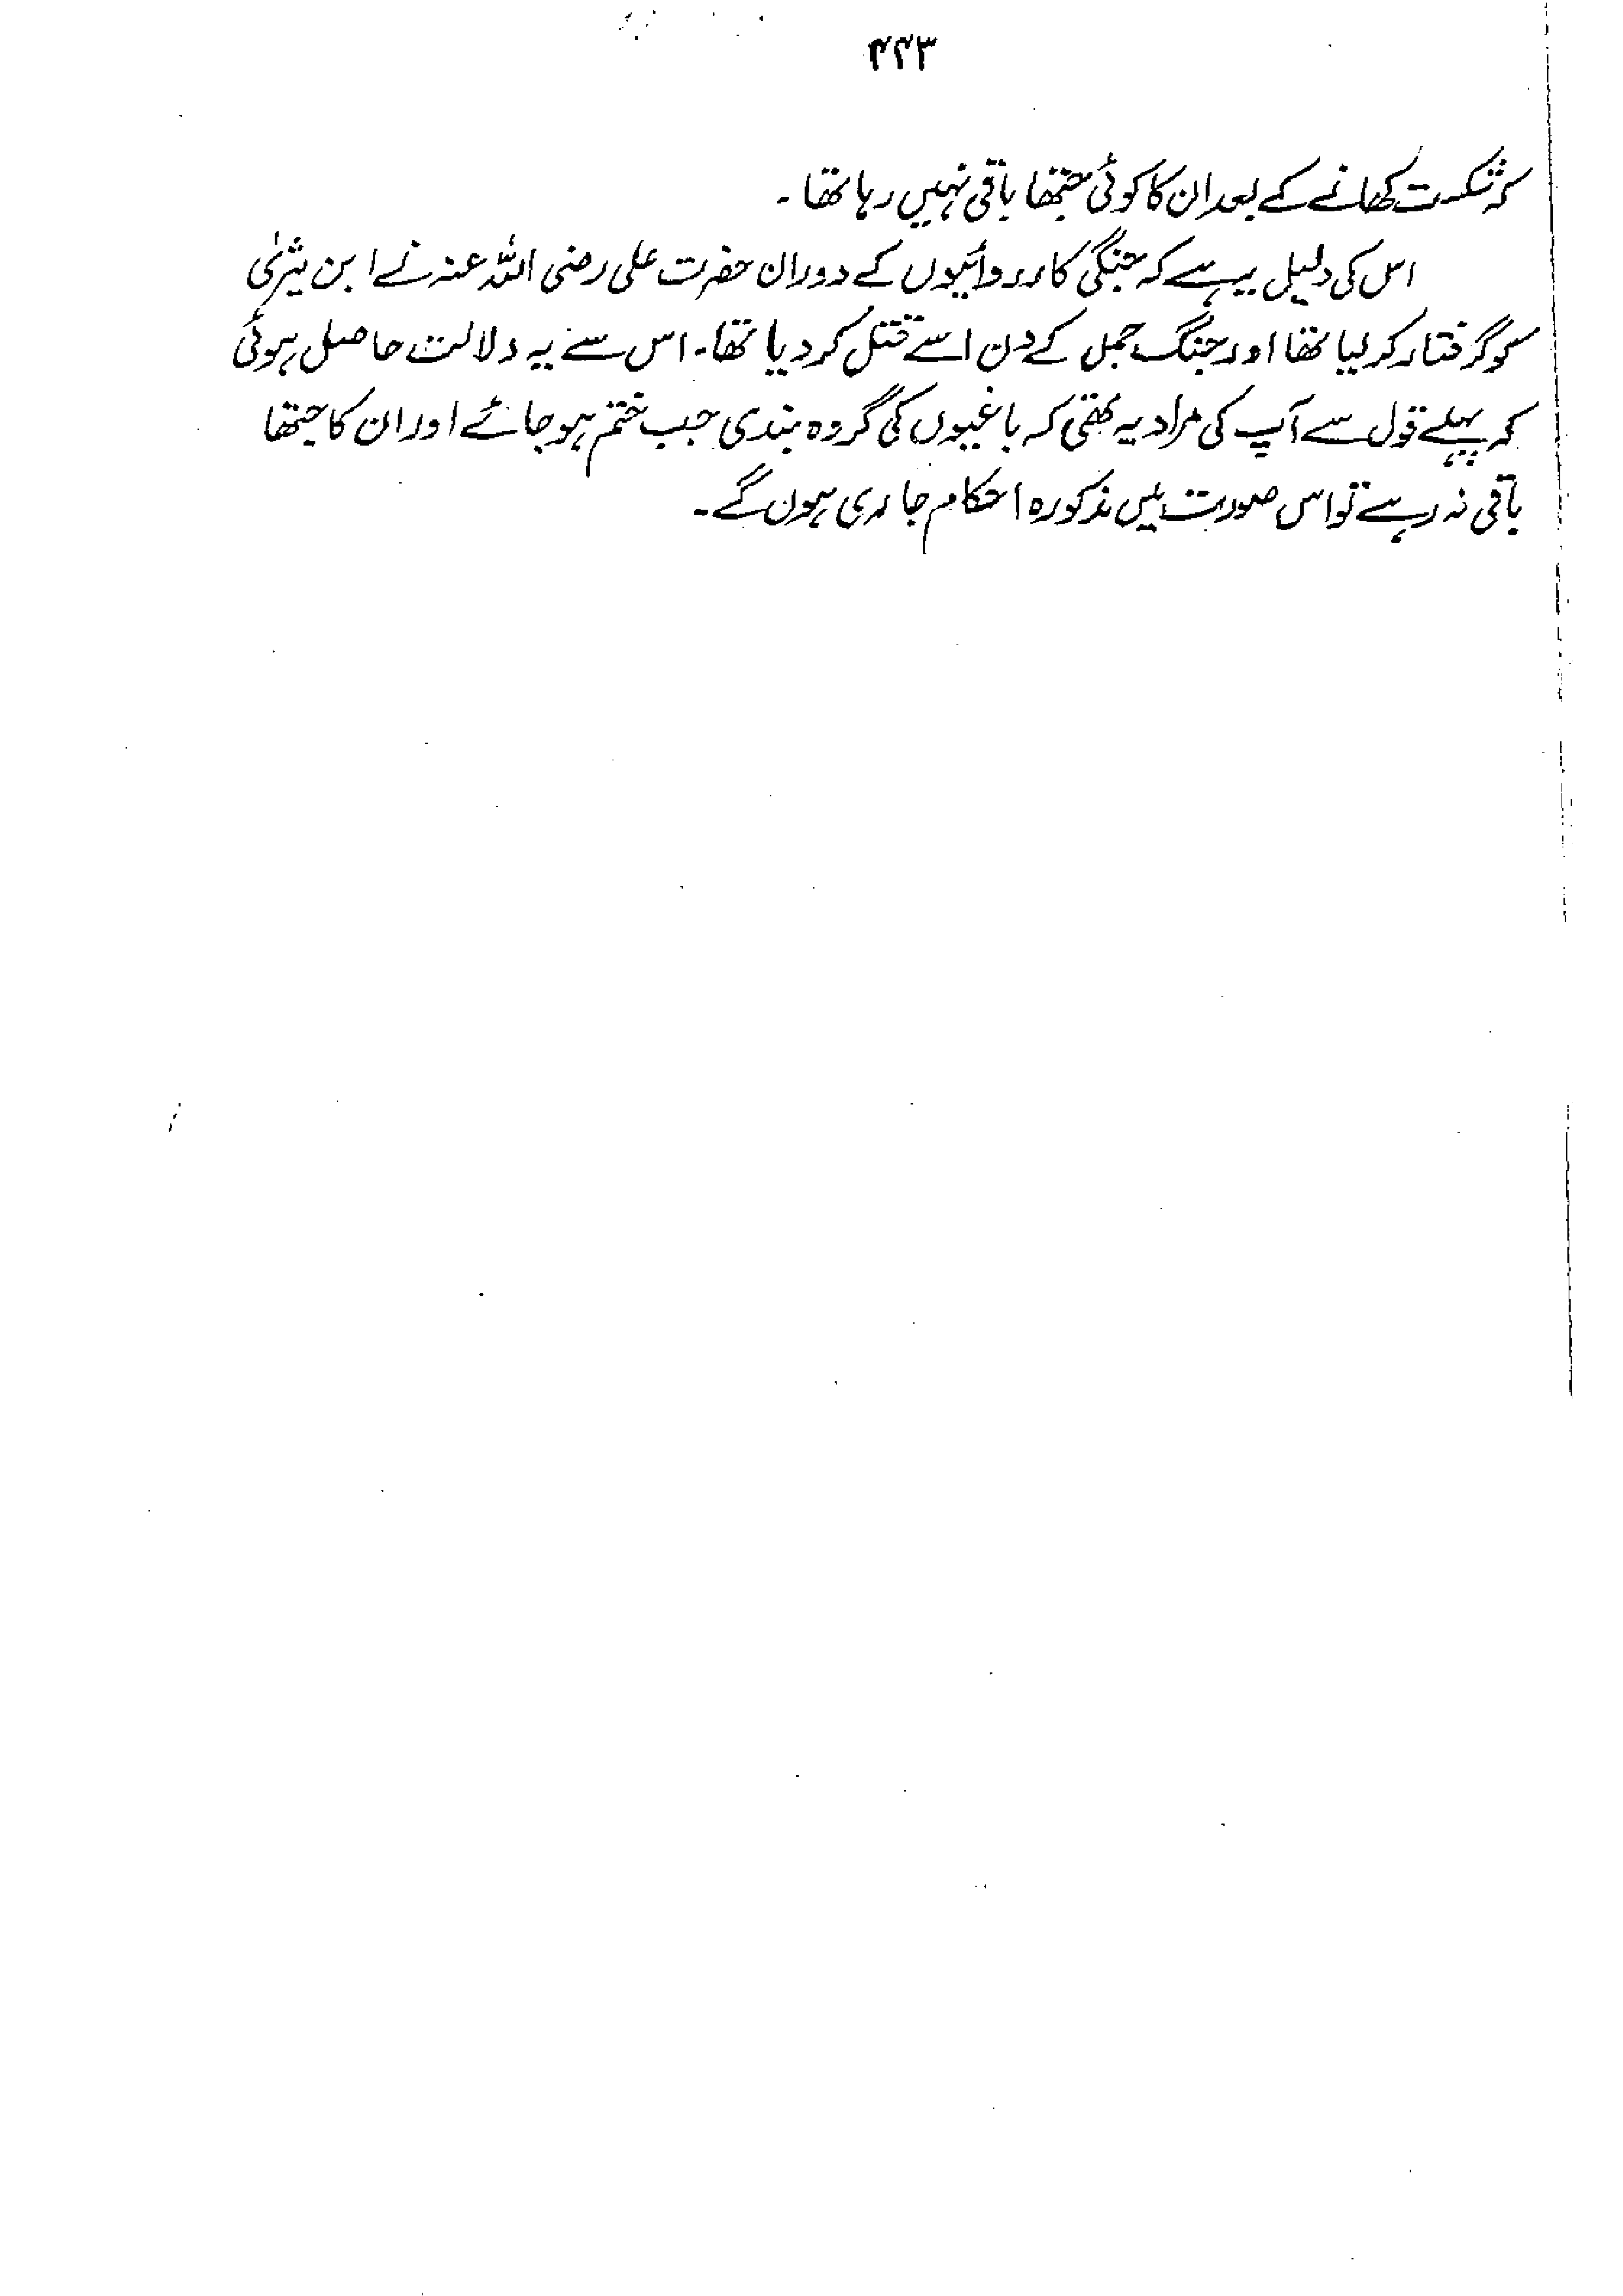 ۴۴۳
کہ شکست کھانے کے بعد ان کا کوئی جتھا باقی نہیں رہا تھا۔
اس کی دلیل یہ ہے کہ جنگی کارروائیوں کے دوران حضرت علی رضی اللہ عنہ نے ابن یثربی
کو گرفتار کر لیا تھا اور جنگ جمل کے دن اسے قتل کر دیا تھا۔ اس سے یہ دلالت حاصل ہوئی
کہ پہلے قول سے آپ کی مراد یہ تھی کہ باغیوں کی گروہ بندی جب ختم ہو جائے اور ان کا جتھا
باقی نہ رہے تو اس صورت میں مذکورہ احکام جاری ہوں گے۔